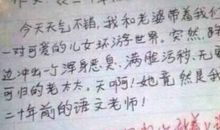 今天天气不错,我和老婆带着我们
一对可爱的儿女环游世界。突然,路
边冲出一个浑身恶臭、满脸污秽、无家
可归的老太太。天啊!她竟然是我
二十年前的语文老师!